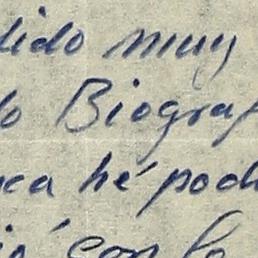 dido muy
lo Biograf
nca hé pod
ió con lo